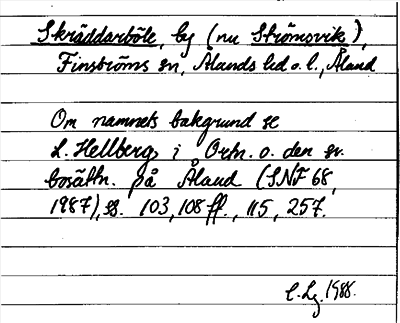 Skräddarböle, by (nu Strömsvik),
Finströms sn, Ålands hd o. l., Åland
Om namnets bakgrund se
L. Hellberg, i Ortn. o. den sv.
bosättn. på Åland (SNF 68,
1987), ss. 103, 108 ff., 115, 257.
C. Lg. 1988.